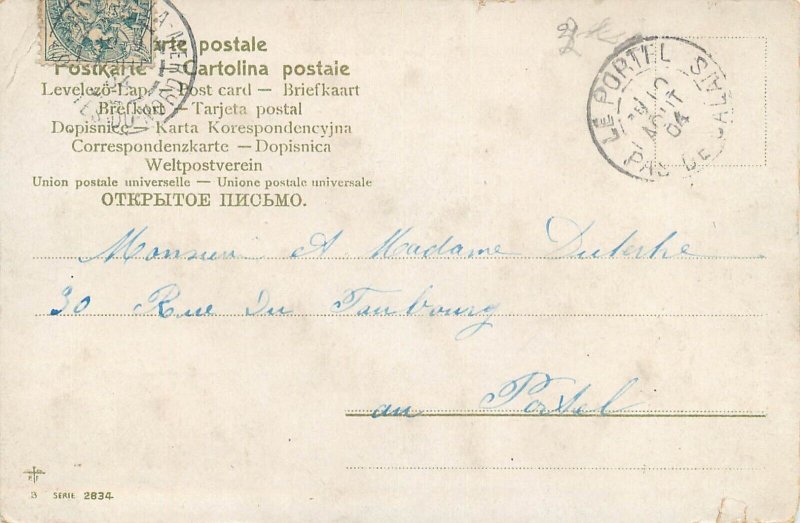 Carte postale
Postkarte — Cartolina postale
Levelező-Lap — Post card — Briefkaart
Brefkort — Tarjeta postal
Dopisnice — Karta Korespondencyjna
Correspondenzkarte — Dopisnica
Weltpostverein
Union postale universelle — Unione postale universale
ОТКРЫТОЕ ПИСЬМО.
LE PORTEL
PAS DE CALAIS
AOUT
04
Monsieur & Madame
30 Rue Du Faubourg
au Portel
3 SERIE 2834